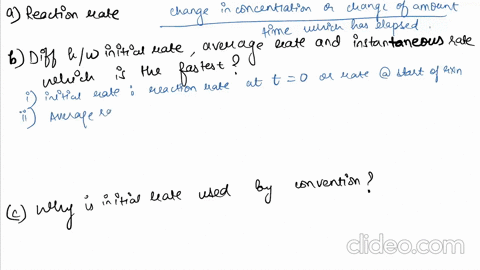 a) Reaction rate
change in concentration or change of amount
time which has elapsed.
b) Diff b/w initial rate, average rate and instantaneous rate
which is the fastest?
i) initial rate : reaction rate at t = 0 or rate @ start of rxn
ii) Average r
(c) Why is initial rate used by convention?
clideo.com